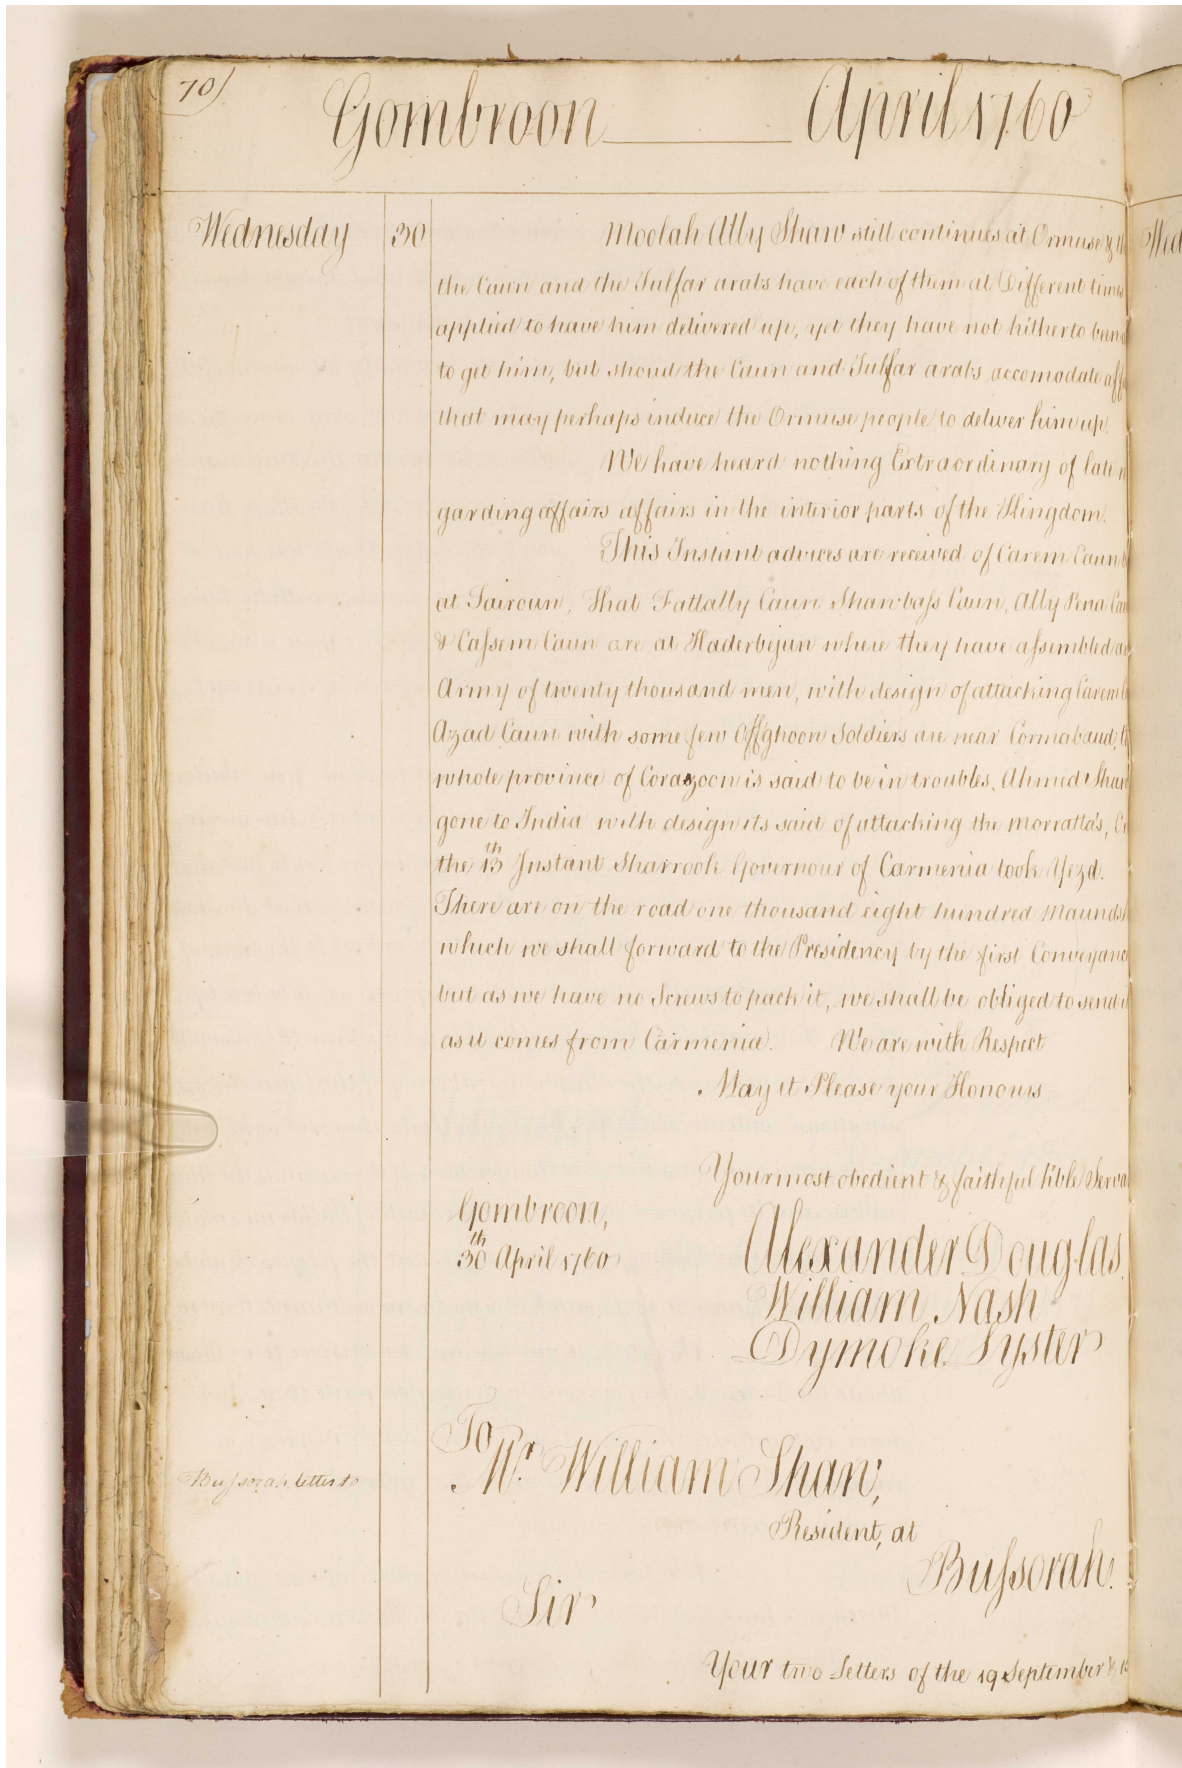 70)
Gombroon April 1760
Wednesday 30 Moolah Ally Shaw still continues at Ormuse &
the Caun and the Julfar arabs have each of them at Different times
applied to have him delivered up, yet they have not hitherto been
to get him, but shoud the Caun and Julfar arabs accomodate
that may perhaps induce the Ormuse people to deliver him up.
We have heard nothing Extraordinary of late
garding affairs affairs in the interior parts of the Kingdom.
This Instant advices are received of Carem Caun
at Tairoun, That Fattally Caun Shawbass Caun, Ally Rena
& Cassem Caun are at Haderbejun where they have assembled an
Army of twenty thousand men, with design of attacking Carem
Azad Caun with some few Offghoon Soldiers are near Cormabaud,
whole province of Corazoon is said to be in troubles, Ahmed Shaw
gone to India with design its said of attacking the Morratta's,
the 13th Instant Sharrook Governour of Carmenia took Yezd.
There are on the road one thousand eight hundred Maunds
which we shall forward to the Presidency by the first Conveyance
but as we have no Screws to pack it, we shall be obliged to send
as it comes from Carmenia. We are with Respect
May it Please your Honours
Your most obedient & faithful hble Serva
Gombroon,
30th April 1760
Alexander Douglas.
William Nash
Dymoke Lyster
To
Mr. William Shaw,
Bussorah letter to
Resident, at
Bussorah.
Sir
Your two Letters of the 19 September &